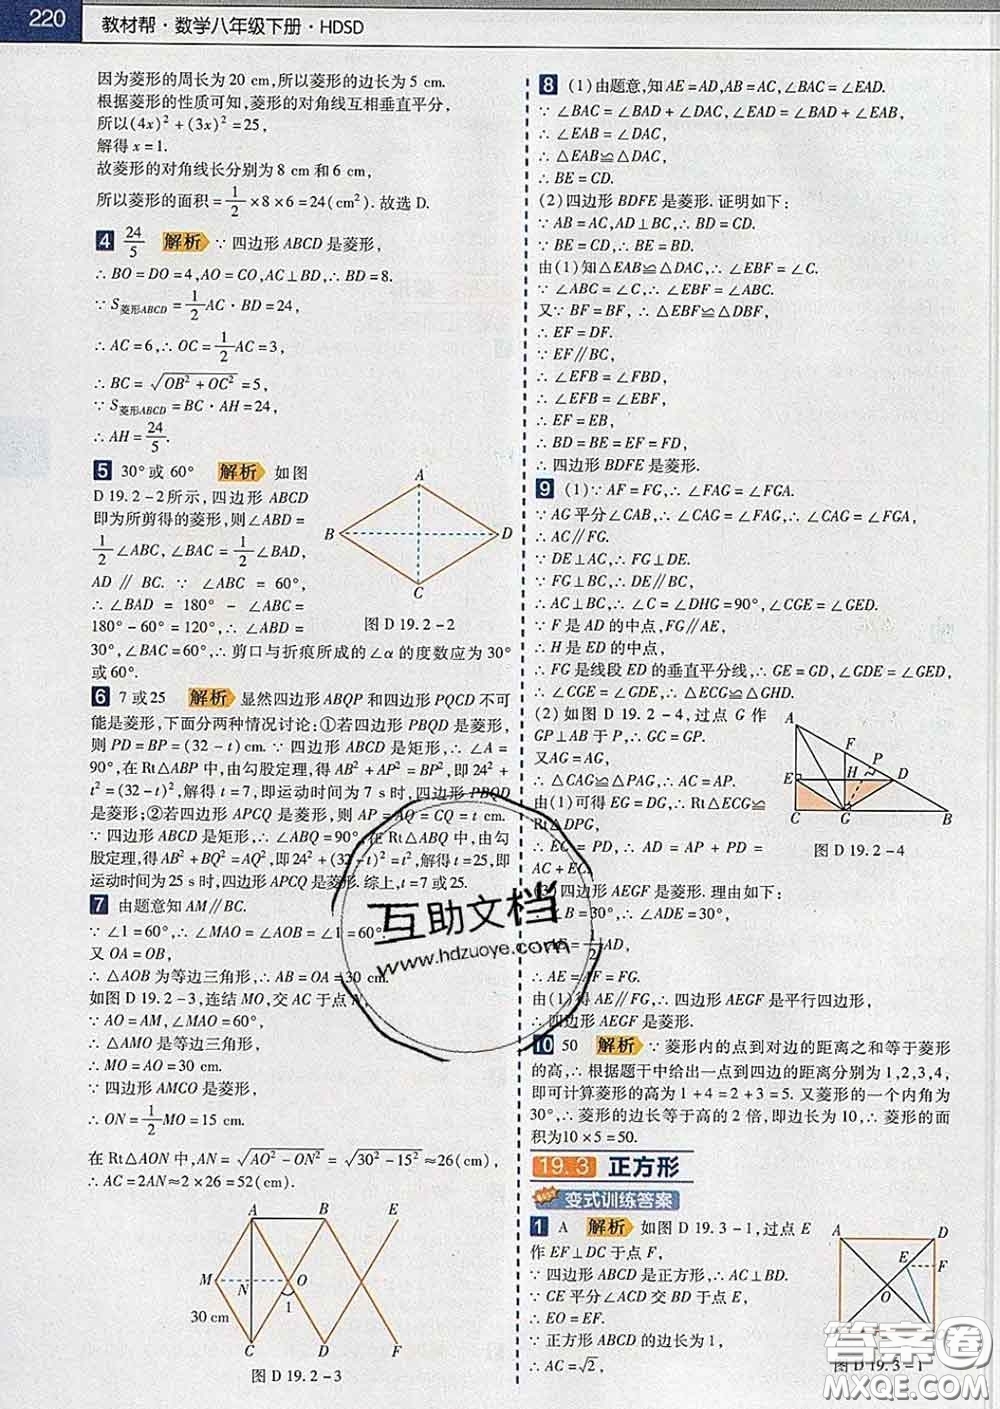 220
教材帮·数学八年级下册·HDSD
因为菱形的周长为20 cm,所以菱形的边长为5 cm.
根据菱形的性质可知,菱形的对角线互相垂直平分,
所以(4x)²+(3x)²=25,
解得x=1.
故菱形的对角线长分别为8 cm和6 cm,
所以菱形的面积=1/2×8×6=24(cm²).故选D.
4 24/5 解析 ∵四边形ABCD是菱形,
∴BO=DO=4,AO=CO,AC⊥BD,∴BD=8.
∵S菱形ABCD=1/2AC·BD=24,
∴AC=6,∴OC=1/2AC=3,
∴BC=√(OB²+OC²)=5,
∵S菱形ABCD=BC·AH=24,
∴AH=24/5.
5 30°或60° 解析 如图
D 19.2-2所示,四边形ABCD
即为所剪得的菱形,则∠ABD=
1/2∠ABC,∠BAC=1/2∠BAD,
AD∥BC.∵∠ABC=60°,
∴∠BAD=180°-∠ABC=
180°-60°=120°,∴∠ABD=
30°,∠BAC=60°,∴剪口与折痕所成的∠α的度数应为30°
或60°.
A
B
D
C
图D 19.2-2
6 7或25 解析 显然四边形ABQP和四边形PQCD不可
能是菱形,下面分两种情况讨论:①若四边形PBQD是菱形,
则PD=BP=(32-t)cm.∵四边形ABCD是矩形,∴∠A=
90°,在Rt△ABP中,由勾股定理,得AB²+AP²=BP²,即24²+
t²=(32-t)²,解得t=7,即运动时间为7 s时,四边形PBQD
是菱形;②若四边形APCQ是菱形,则AP=AQ=CQ=t cm.
∵四边形ABCD是矩形,∴∠ABQ=90°,在Rt△ABQ中,由勾
股定理,得AB²+BQ²=AQ²,即24²+(32-t)²=t²,解得t=25,即
运动时间为25 s时,四边形APCQ是菱形.综上,t=7或25.
7 由题意知AM∥BC.
∵∠1=60°,∴∠MAO=∠AOB=∠1=60°.
又OA=OB,
∴△AOB为等边三角形,∴AB=OA=30 cm.
如图D 19.2-3,连结MO,交AC于点N,
∵AO=AM,∠MAO=60°,
∴△AMO是等边三角形,
∴MO=AO=30 cm.
∵四边形AMCO是菱形,
∴ON=1/2MO=15 cm.
在Rt△AON中,AN=√(AO²-ON²)=√(30²-15²)≈26(cm),
∴AC=2AN≈2×26=52(cm).
A B E
M N O
30 cm 1
C D F
图D 19.2-3
8 (1)由题意,知AE=AD,AB=AC,∠BAC=∠EAD.
∵∠BAC=∠BAD+∠DAC,∠EAD=∠BAD+∠EAB,
∴∠EAB=∠DAC,
∴△EAB≌△DAC,
∴BE=CD.
(2)四边形BDFE是菱形.证明如下:
∵AB=AC,AD⊥BC,∴BD=CD.
∵BE=CD,∴BE=BD.
由(1)知△EAB≌△DAC,∴∠EBF=∠C.
∵∠ABC=∠C,∴∠EBF=∠ABC,
又∵BF=BF,∴△EBF≌△DBF,
∴EF=DF.
∵EF∥BC,
∴∠EFB=∠FBD,
∴∠EFB=∠EBF,
∴EF=EB,
∴BD=BE=EF=FD,
∴四边形BDFE是菱形.
9 (1)∵AF=FG,∴∠FAG=∠FGA.
∵AG平分∠CAB,∴∠CAG=∠FAG,∴∠CAG=∠FGA,
∴AC∥FG.
∵DE⊥AC,∴FG⊥DE.
∵FG⊥BC,∴DE∥BC,
∴AC⊥BC,∴∠C=∠DHG=90°,∠CGE=∠GED.
∵F是AD的中点,FG∥AE,
∴H是ED的中点,
∴FG是线段ED的垂直平分线,∴GE=GD,∠GDE=∠GED,
∴∠CGE=∠GDE,∴△ECG≌△GHD.
(2)如图D 19.2-4,过点G作
GP⊥AB于P,∴GC=GP.
又AG=AG,
∴△CAG≌△PAG,∴AC=AP.
由(1)可得EG=DG,∴Rt△ECG≌
Rt△DPG,
∴EC=PD,∴AD=AP+PD=
AC+EC.
A
F P
E H D
C G B
图D 19.2-4
(3)四边形AEGF是菱形.理由如下:
∵∠B=30°,∴∠ADE=30°,
∴AE=1/2AD,
∴AE=AF=FG.
由(1)得AE∥FG,∴四边形AEGF是平行四边形,
∴四边形AEGF是菱形.
10 50 解析 ∵菱形内的点到对边的距离之和等于菱形
的高,∴根据题干中给出一点到四边的距离分别为1,2,3,4,
即可计算菱形的高为1+4=2+3=5.又菱形的一个内角为
30°,∴菱形的边长等于高的2倍,即边长为10,∴菱形的面
积为10×5=50.
19.3 正方形
变式训练答案
1 A 解析 如图D 19.3-1,过点E
作EF⊥DC于点F,
∵四边形ABCD是正方形,∴AC⊥BD.
∵CE平分∠ACD交BD于点E,
∴EO=EF.
∵正方形ABCD的边长为1,
∴AC=√2,
A D
E F
O
图D 19.3-1
互助文档
www.hdzuoye.com
答案圈
MXQE.COM